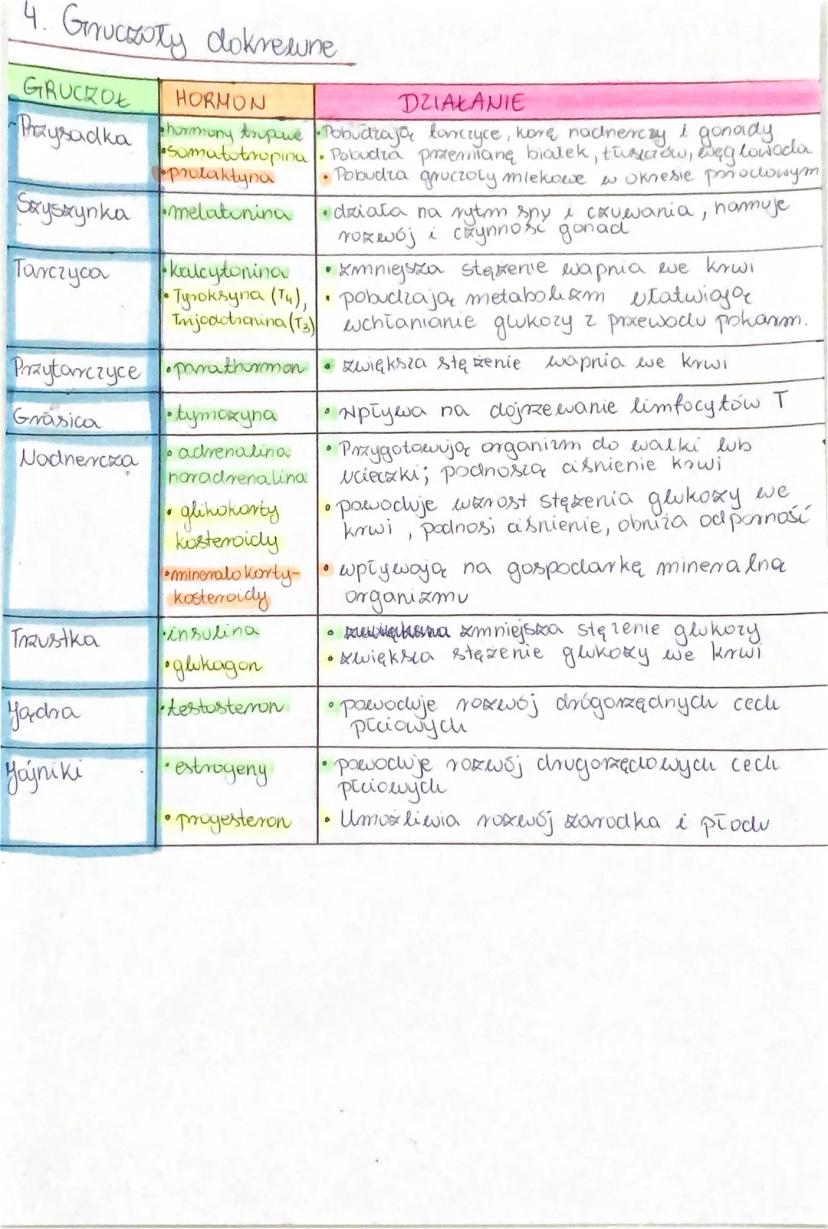 4. Gruczoły dokrewne
GRUCZOŁ HORMON DZIAŁANIE
Przysadka
•hormony tropowe
•somatotropina
•prolaktyna
•Pobudzają tarczyce, korę nadnerczy i gonady
• Pobudza przemianę białek, tłuszczów, węglowoda
• Pobudza gruczoły mlekowe w okresie porodowym
Szyszynka
•melatonina
• działa na rytm spy i czuwania, hamuje
rozwój i czynność gonad
Tarczyca
•kalcytonina
• Tyroksyna (T4),
Trijodotronina (T3)
• zmniejsza stężenie wapnia we krwi
• pobudzają metabolizm ułatwiają
wchłanianie glukozy z przewodu pokarm.
Przytarczyce
•parathormon
• zwiększa stężenie wapnia we krwi
Grasica
•tymozyna
• Wpływa na dojrzewanie limfocytów T
Nadnercza
• adrenalina
noradrenalina
• glikokorty
kosteroidy
•mineralokorty-
kosteroidy
• Przygotowują organizm do walki lub
ucieczki; podnoszą ciśnienie krwi
• powoduje wzrost stężenia glukozy we
krwi, podnosi ciśnienie, obniża odporność
• wpływają na gospodarkę mineralną
organizmu
Trzustka
•insulina
•glukagon
• zmniejsza stężenie glukozy
• zwiększa stężenie glukozy we krwi
Jądra
•testosteron
• powoduje rozwój drógorzędnych cech
płciowych
Jajniki
• estrogeny
• progesteron
• powoduje rozwój drugorzędowych cech
płciowych
• Umożliwia rozwój zarodka i płodu